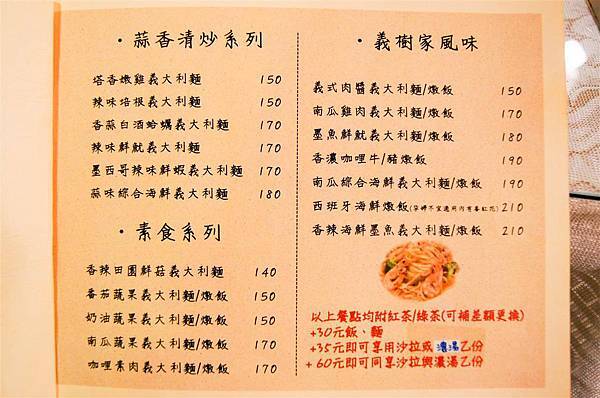 ·蒜香清炒系列
塔香燉雞義大利麵 150
辣味培根義大利麵 150
香蒜白酒蛤蠣義大利麵 170
辣味鮮魷義大利麵 170
墨西哥辣味鮮蝦義大利麵 170
蒜味綜合海鮮義大利麵 180
·素食系列
香辣田園鮮菇義大利麵 140
番茄蔬果義大利麵/燉飯 150
奶油蔬果義大利麵/燉飯 150
南瓜蔬果義大利麵/燉飯 170
咖哩素肉義大利麵/燉飯 170
·義樹家風味
義式肉醬義大利麵/燉飯 150
南瓜雞肉義大利麵/燉飯 170
墨魚鮮魷義大利麵/燉飯 180
香濃咖哩牛/豬燉飯 190
南瓜綜合海鮮義大利麵/燉飯 190
西班牙海鮮燉飯(孕婦不宜適用內有番紅花) 210
香辣海鮮墨魚義大利麵/燉飯 210
以上餐點均附紅茶/綠茶(可補差額更換)
+30元飯、麵
+35元即可享用沙拉或濃湯乙份
+60元即可同享沙拉與濃湯乙份